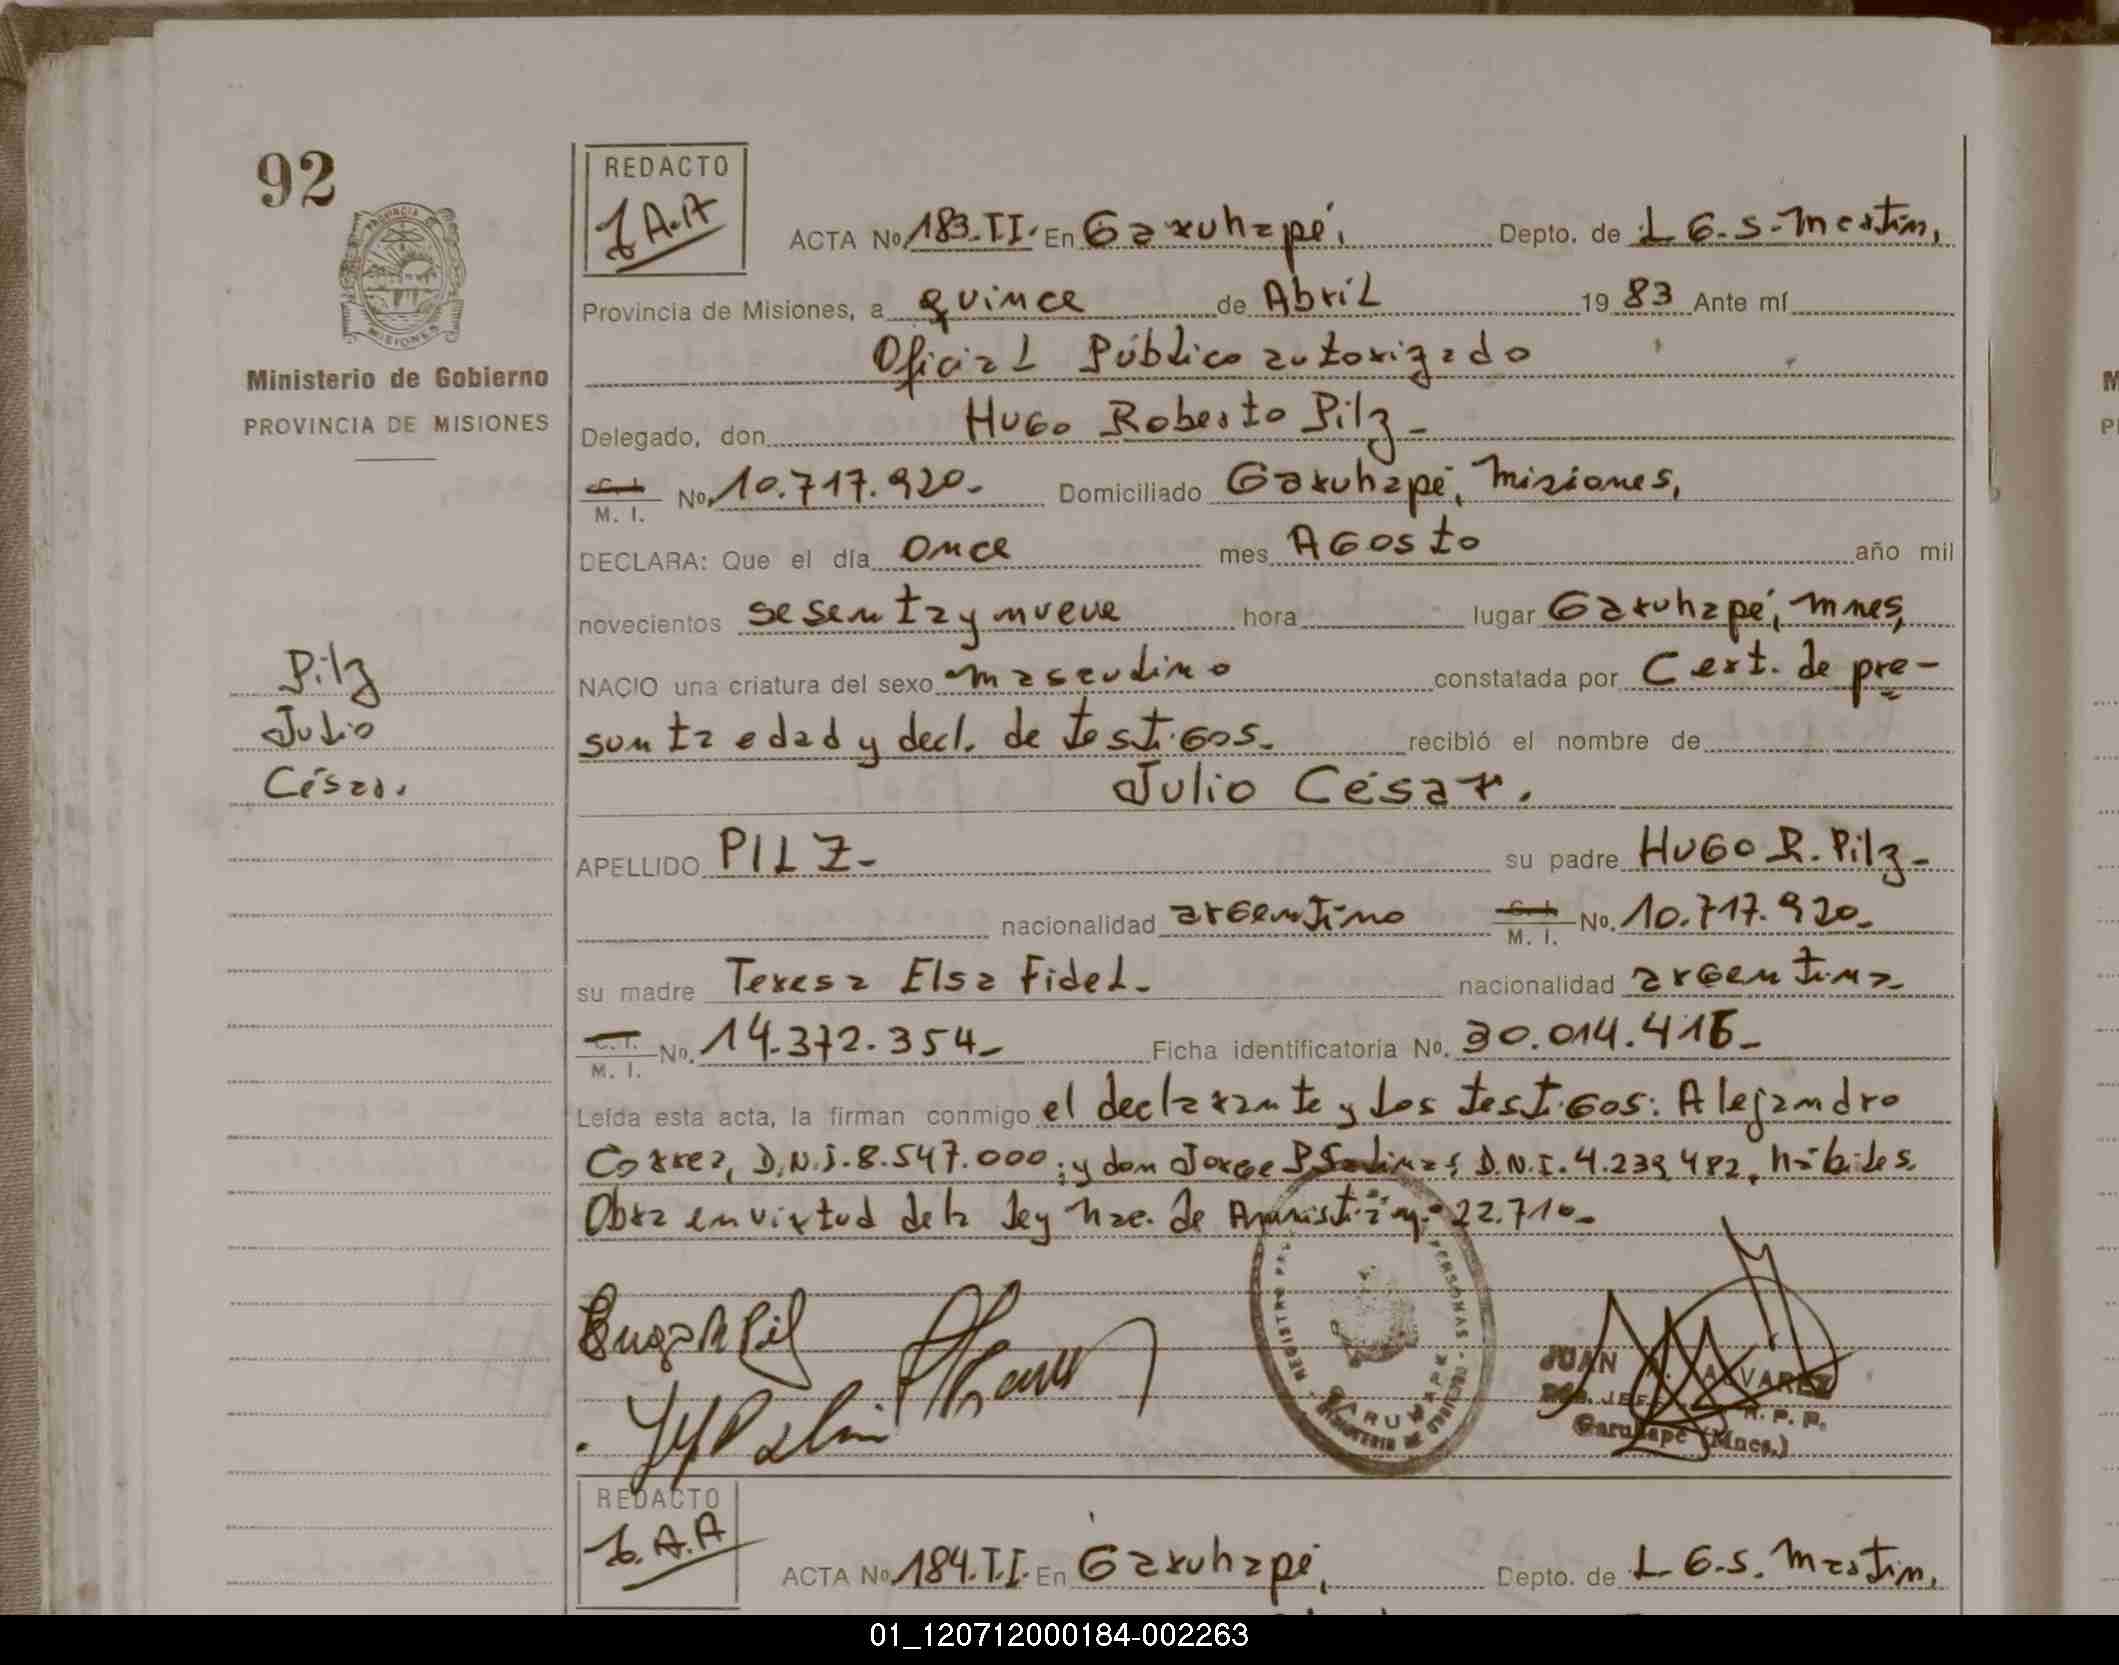 92
REDACTO
J.A.A
ACTA No 183-II. En Garuhapé, Depto. de L G. S. Martín,
Provincia de Misiones, a quince de Abril 1983 Ante mí
Oficial Público autorizado
Ministerio de Gobierno
PROVINCIA DE MISIONES
Delegado, don Hugo Roberto Pilz-
C. I.
M. I. No. 10.717.920- Domiciliado Garuhapé, Misiones,
DECLARA: Que el día once mes AGosto año mil
novecientos sesenta y nueve hora lugar Garuhapé, Mnes,
NACIO una criatura del sexo masculino constatada por Cert. de pre-
sunta edad y decl. de testigos. recibió el nombre de
Julio César.
Pilz
Julio
César.
APELLIDO PILZ- su padre HUGO R. Pilz-
nacionalidad argentino C. I. M. I. No. 10.717.920-
su madre Teresa Elsa Fidel- nacionalidad argentina
C. I. M. I. No. 14.372.354- Ficha identificatoria No. 30.014.416-
Leída esta acta, la firman conmigo el declarante y los testigos: Alejandro
Correa, D.N.I. 8.547.000; y don Jorge Salinas, D.N.I. 4.239.482, hábiles.
Obra en virtud de la ley Nac. de Amnistía nº 22.710-
REGISTRO PERSONAS
GARUHAPE
MINISTERIO DE GOBIERNO
JUAN A. ALVAREZ
JEFE R. P. P.
Garuhapé (Mnes.)
REDACTO
J.A.A
ACTA No 184.II. En Garuhapé, Depto. de L G. S. Martín,
01_120712000184-002263